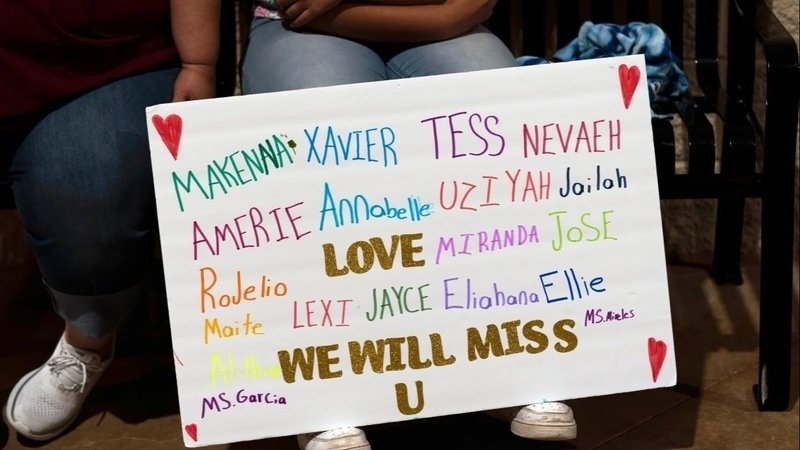 MAKENNA XAVIER TESS NEVAEH
AMERIE Annabelle UZIYAH Jailah
LOVE MIRANDA JOSE
RoJelio
LEXI JAYCE Eliahana Ellie
Maite
WE WILL MISS MS. Mireles
MS. Garcia U